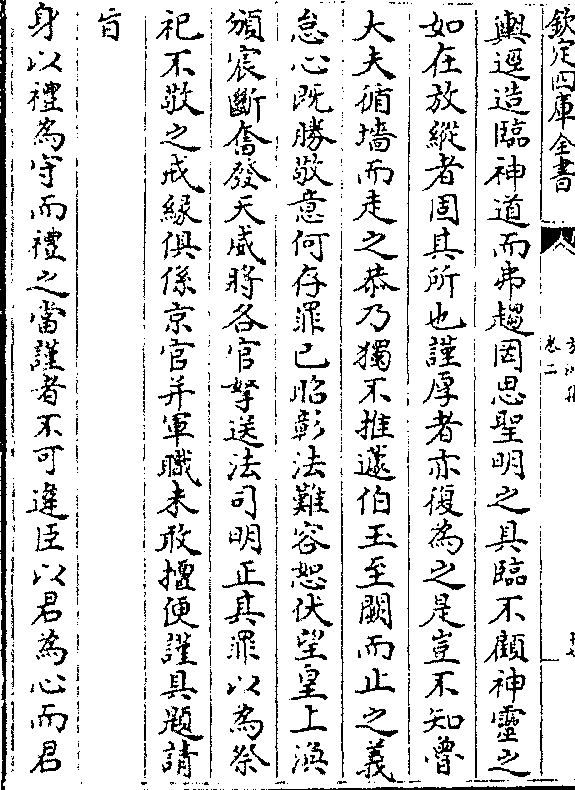 欽定四庫全書
卷二
輿逕造臨神道而弗趨因思聖明之具臨不顧神靈之
如在放縱者固其所也謹厚者亦復為之是豈不知魯
大夫循墻而走之恭乃獨不推蘧伯玉至闕而止之義
怠心既勝敬意何存罪已昭彰法難容恕伏望皇上渙
頒宸斷奮發天威將各官拏送法司明正其罪以為祭
祀不敬之戒緣俱係京官并軍職未敢擅便謹具題請
旨
身以禮為守而禮之當謹者不可違臣以君為心而君